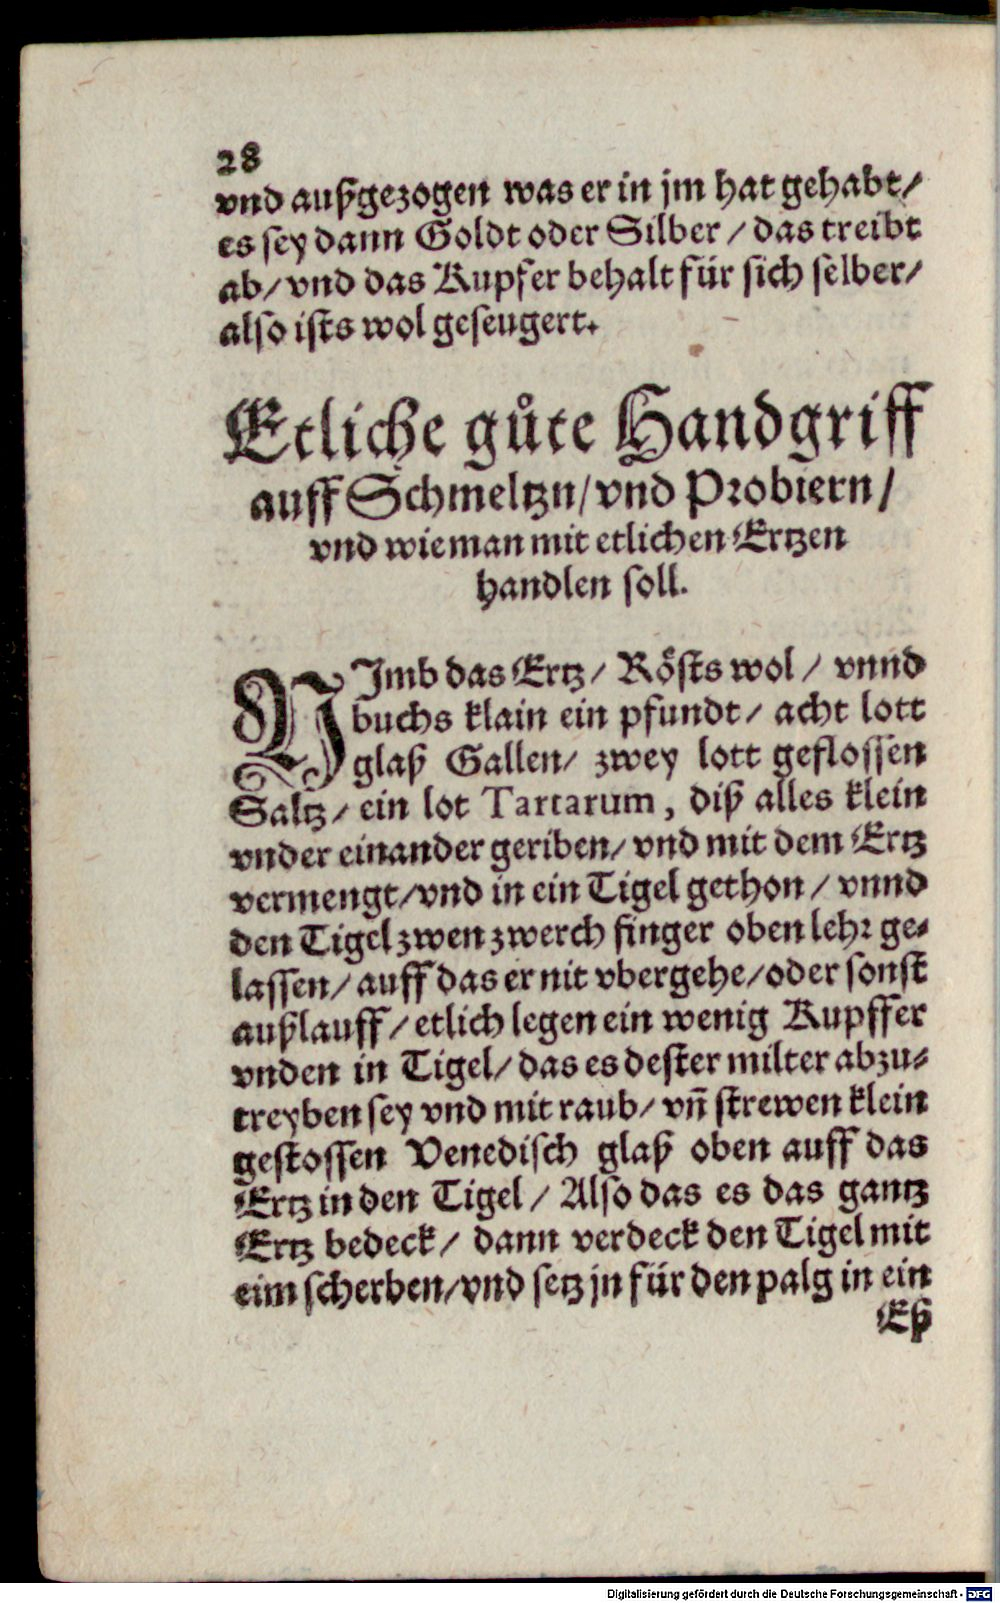 28
vnd außgezogen was er in jm hat gehabt/
es sey dann Goldt oder Silber / das treibt
ab/ vnd das Kupfer behalt für sich selber/
also ists wol geseugert.
Etliche gůte Handgriff
auff Schmeltzn/ vnd Probiern/
vnd wie man mit etlichen Ertzen
handlen soll.
NImb das Ertz/ Rösts wol / vnnd
buchs klain ein pfundt/ acht lott
glaß Gallen/ zwey lott geflossen
Saltz/ ein lot Tartarum, diß alles klein
vnder einander geriben/ vnd mit dem Ertz
vermengt/ vnd in ein Tigel gethon / vnnd
den Tigel zwen zwerch finger oben lehr ge-
lassen/ auff das er nit vbergehe/ oder sonst
außlauff / etlich legen ein wenig Kupffer
vnden in Tigel/ das es dester milter abzu-
treyben sey vnd mit raub/ vñ strewen klein
gestossen Venedisch glaß oben auff das
Ertz in den Tigel / Also das es das gantz
Ertz bedeck/ dann verdeck den Tigel mit
eim scherben/ vnd setz jn für den palg in ein
Eß
Digitalisierung gefördert durch die Deutsche Forschungsgemeinschaft - DFG